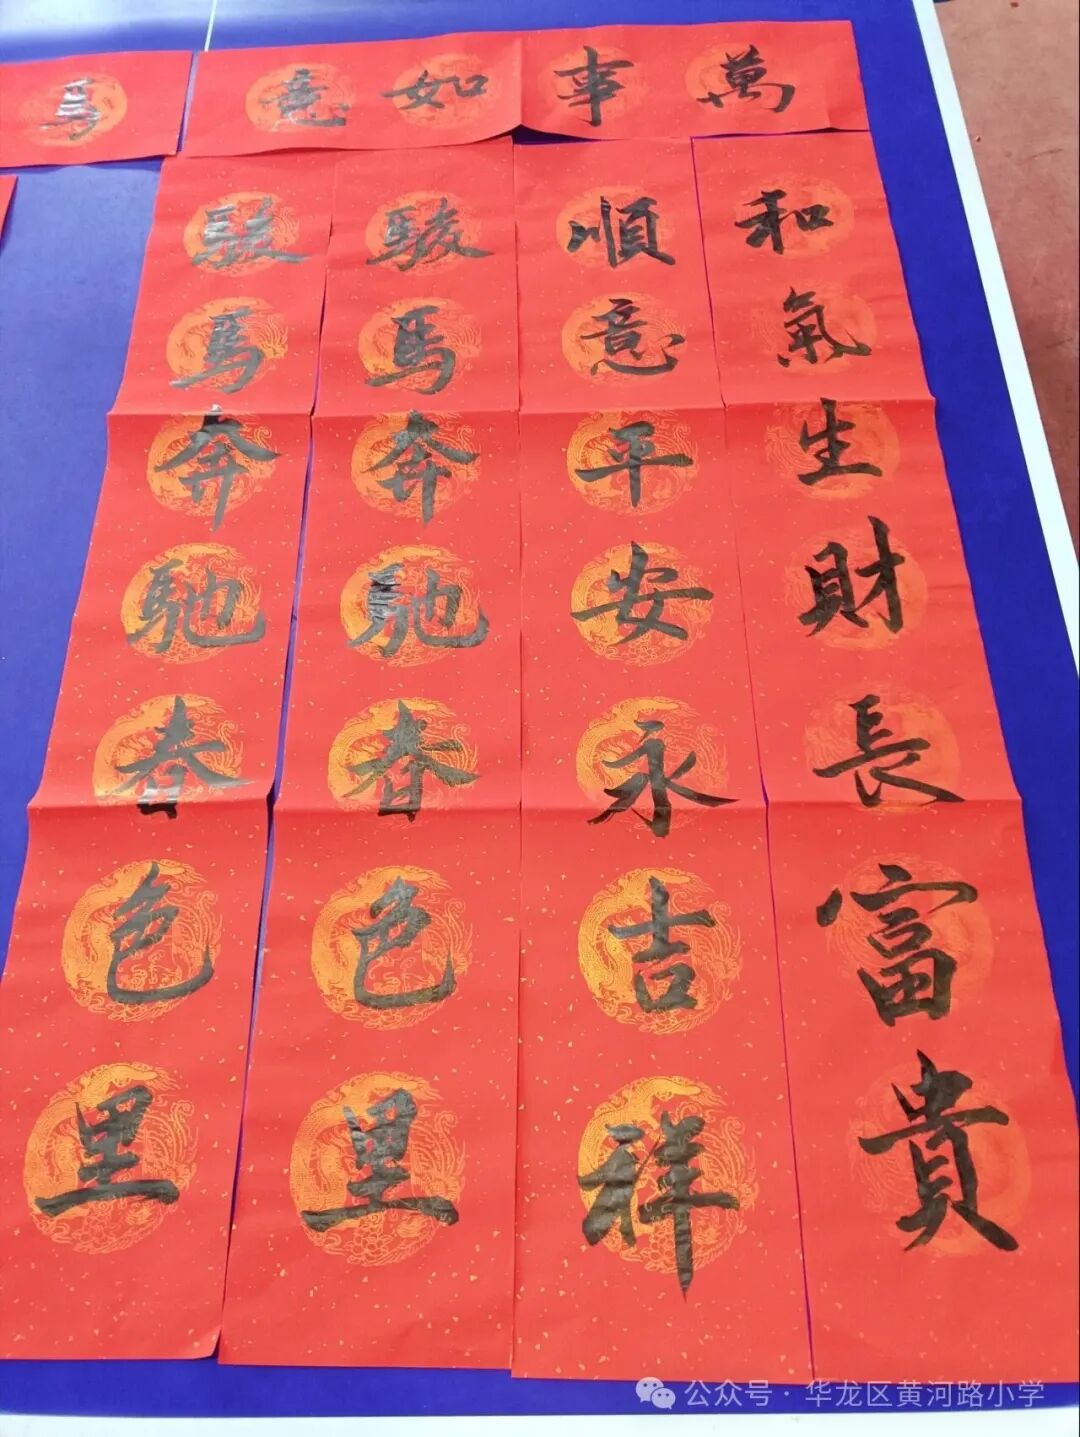 萬事如意
馬
和氣生財長富貴
順意平安永吉祥
駿馬奔馳春色里
駿馬奔馳春色里
公众号·华龙区黄河路小学